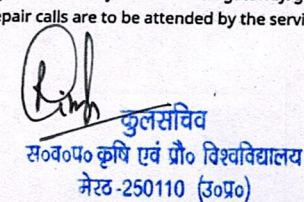 epair calls are to be attended by the servi
कुलसचिव
स०व०प० कृषि एवं प्रौ० विश्वविद्यालय
मेरठ -250110 (उ०प्र०)